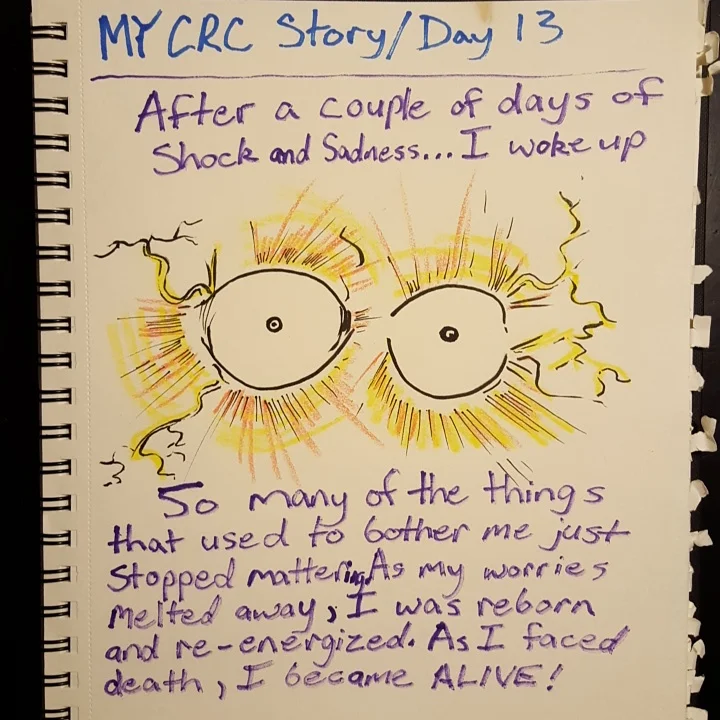 MY CRC Story/Day 13
After a couple of days of
Shock and Sadness... I woke up
So many of the things
that used to bother me just
Stopped mattering. As my worries
melted away, I was reborn
and re-energized. As I faced
death, I became ALIVE!